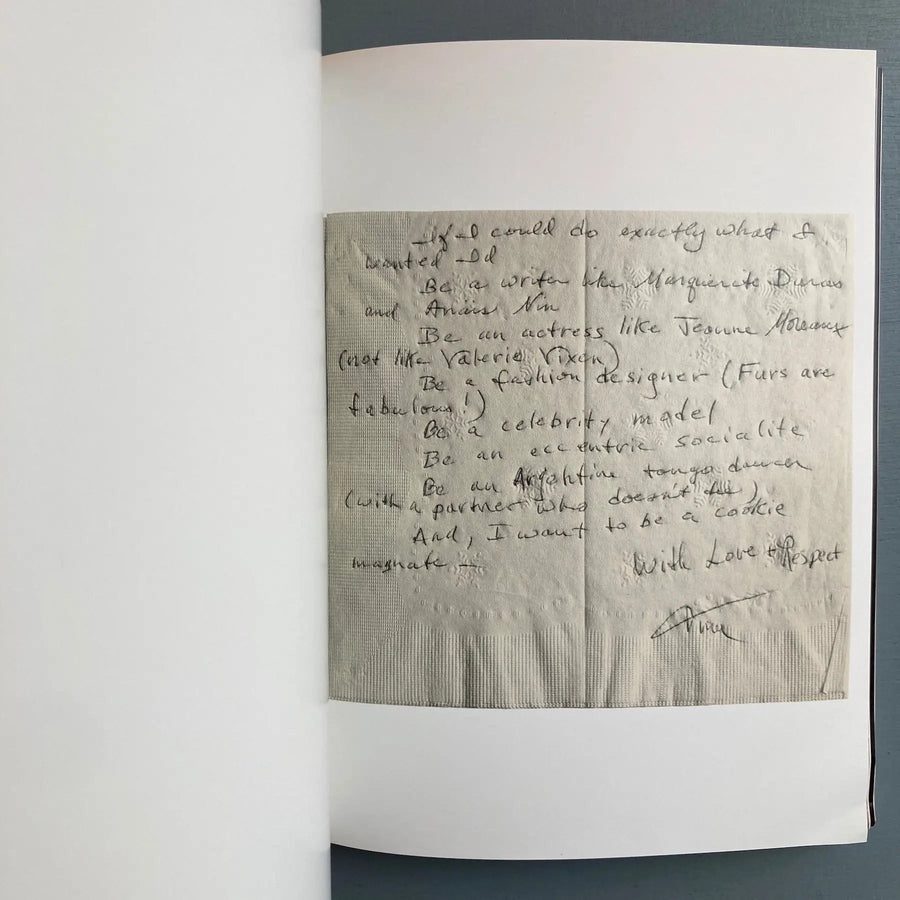 If I could do exactly what I
wanted I'd
Be a writer like Marguerite Duras
and Anaïs Nin
Be an actress like Jeanne Moreaux
(not like Valerie Vixen)
Be a fashion designer (Furs are
fabulous!)
Be a celebrity model
Be an eccentric socialite
Be an Argentine tango dancer
(with a partner who doesn't)
And, I want to be a cookie
magnate —
With Love + Respect